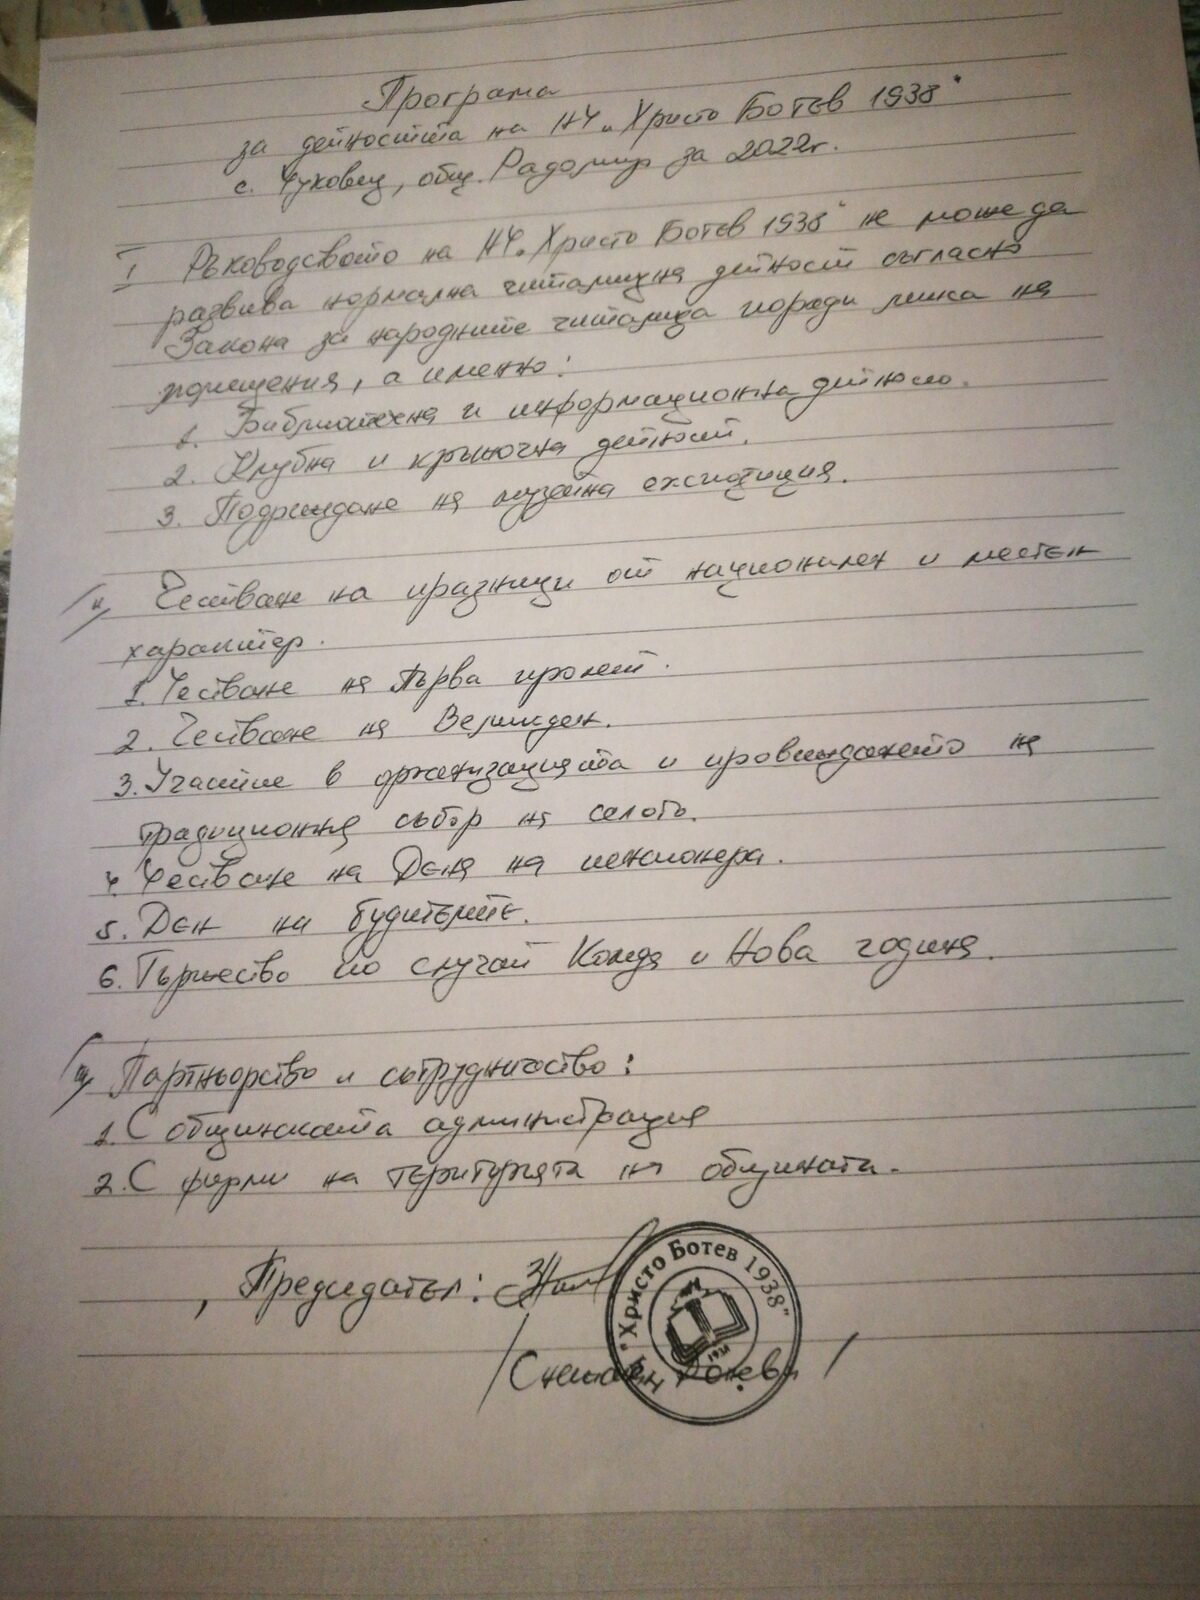 Програма
за дейността на НЧ „Христо Ботев 1938"
с. Чуковец, общ. Радомир за 2022г.
I Ръководството на НЧ „Христо Ботев 1938" не може да
развива нормална читалищна дейност съгласно
Закона за народните читалища поради липса на
помещения, а именно:
1. Библиотечна и информационна дейност.
2. Клубна и кръжочна дейност.
3. Подреждане на музейна експозиция.
II Честване на празници от национален и местен
характер.
1. Честване на Първа пролет.
2. Честване на Великден.
3. Участие в организацията и провеждането на
традиционния събор на селото.
4. Честване на Деня на пенсионера.
5. Ден на будителите.
6. Тържество по случай Коледа и Нова година.
III Партньорство и сътрудничество:
1. С общинската администрация
2. С фирми на територията на общината.
Председател:
НЧ "Христо Ботев 1938"
1938